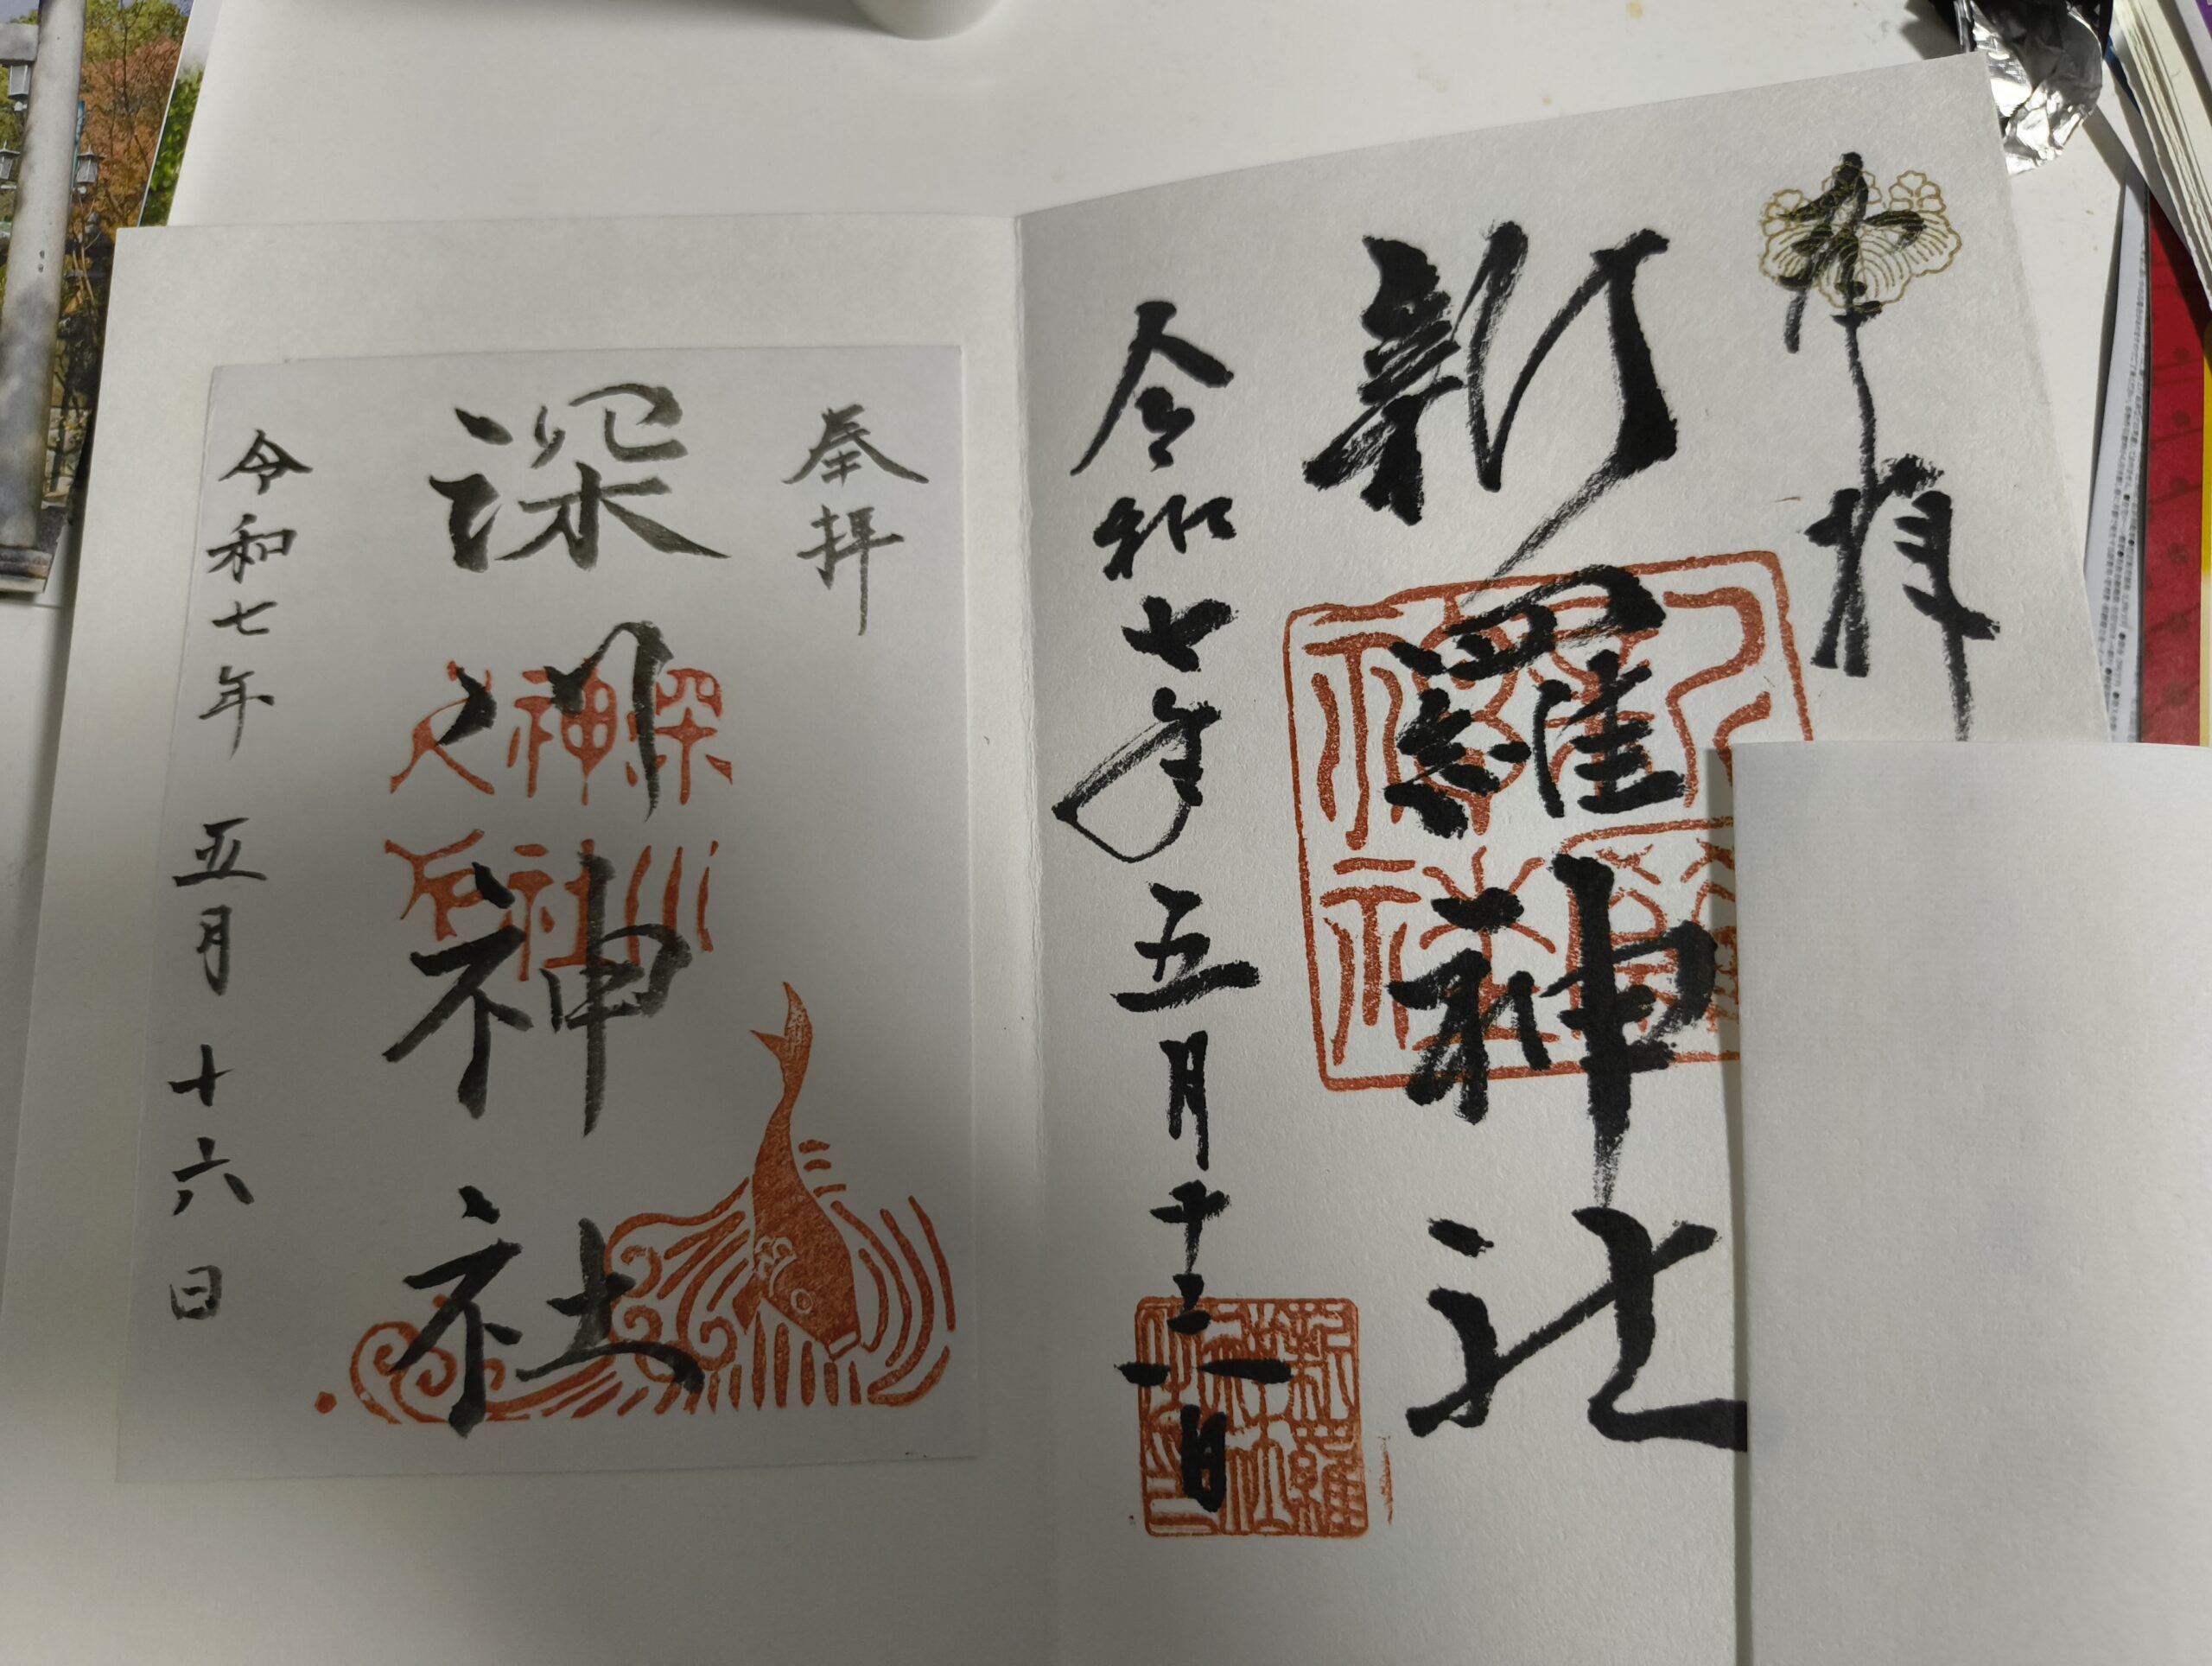 奉拝
新羅神社
令和七年五月十三日
奉拝
深川神社
令和七年 五月 十六日
深川
神社
之印